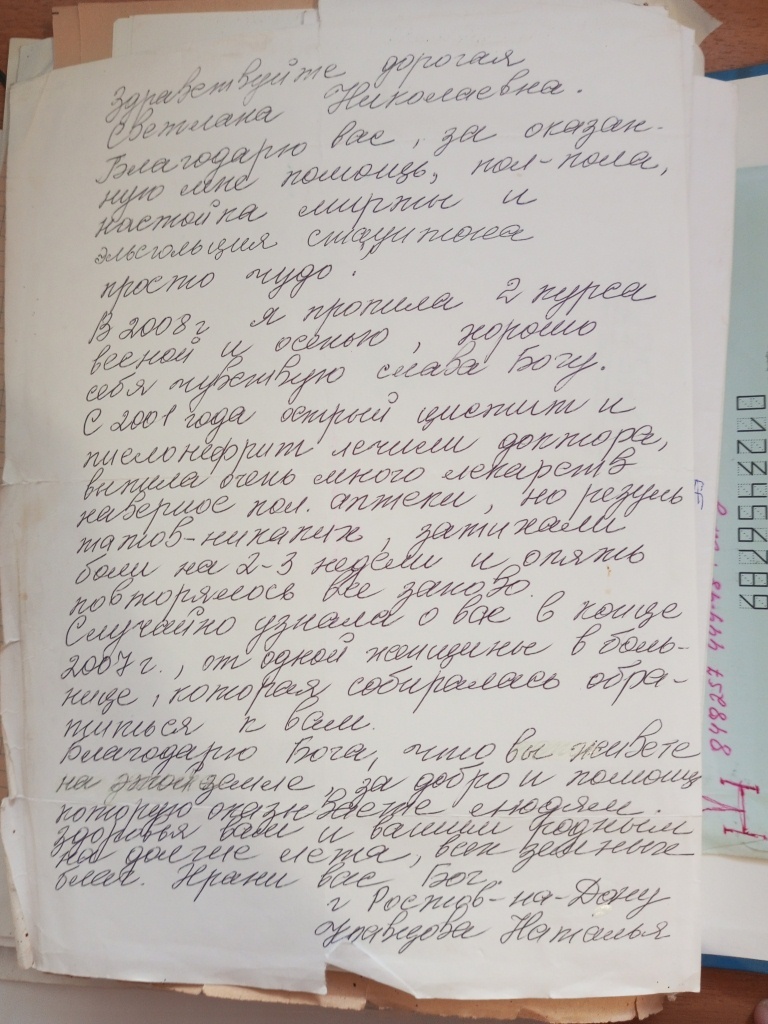 Здравствуйте дорогая
Светлана Николаевна.
Благодарю вас, за оказан-
ную мне помощь, пол-пола,
настойка мирты и
эльсгольция стаунтона
просто чудо.
В 2008г я пропила 2 курса
весной и осенью, хорошо
себя чувствую слава Богу.
С 2001 года острый цистит и
пиелонефрит лечили доктора,
выпила очень много лекарств
наверное пол. аптеки, но резуль
татов-никаких, затихали
боли на 2-3 недели и опять
повторялось все заново.
Случайно узнала о вас в конце
2007г., от одной женщины в боль-
нице, которая собиралась обра-
титься к вам.
Благодарю Бога, что вы живете
на этой земле, за добро и помощь
которую оказываете людям.
Здоровья вам и вашим родным
на долгие лета, всех земных
благ. Храни вас Бог.
г Ростов-на-Дону
Наталья
0123456789
848257 444-48